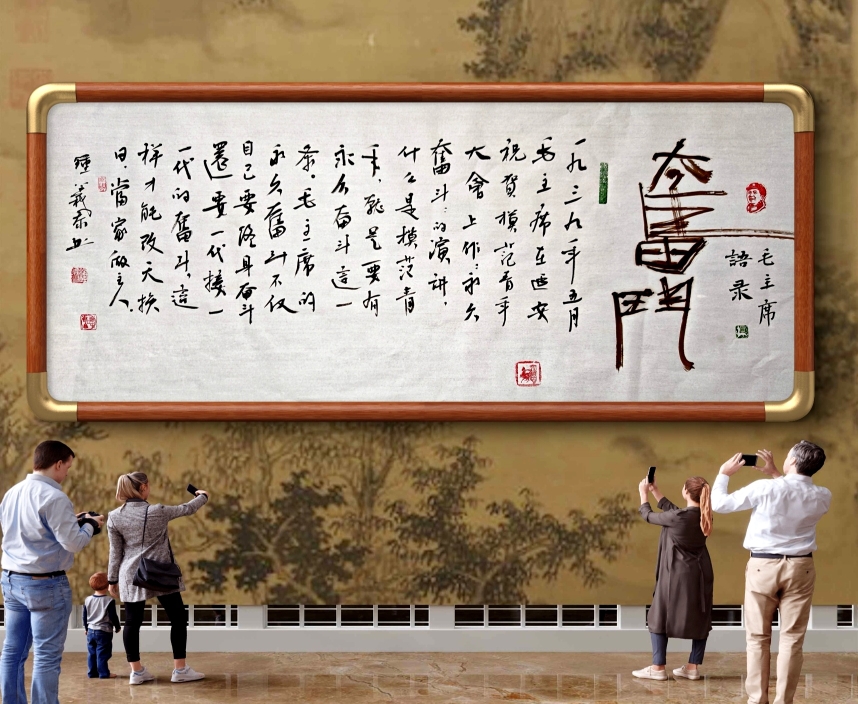 毛主席
語录
奮鬥
一九三九年五月
毛主席在延安
祝贺模范青年
大會上作:永久
奮斗:的演讲,
什么是模范青
年,就是要有
永久奋斗這一
条。毛主席的
永久奮斗不仅
自己要终身奋斗
還要一代接一
一代的奮斗,這
样才能改天换
日,當家做主人.